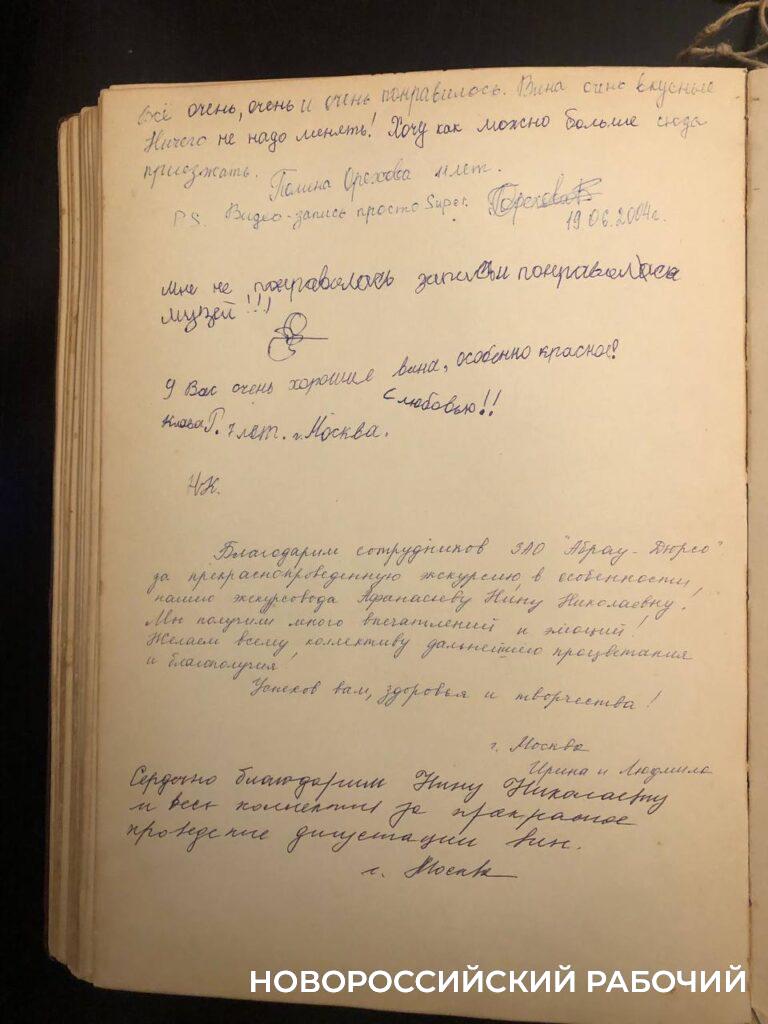 Всё очень, очень и очень понравилось. Вина очень вкусные
Ничего не надо менять! Хочу как можно больше сюда
приезжать. Полина Орехова 11 лет.
P.S. Видео-запись просто Super.
19.06.2004г.
Мне не понравилось запись и понравился
музей!!!
У Вас очень хорошие вина, особенно красное!
С любовью!!
Клава Г. 7 лет. г. Москва.
Н.К.
Благодарим сотрудников ЗАО "Абрау-Дюрсо"
за прекраснопроведенную экскурсию, в особенности,
нашего экскурсовода Афанасьеву Нину Николаевну!
Мы получили много впечатлений и эмоций!
Желаем всему коллективу дальнейшего процветания
и благополучия!
Успехов вам, здоровья и творчества!
г. Москва
Ирина и Людмила
Сердечно благодарим Нину Николаевну
и весь коллектив за прекрасное
проведение дигустации вин.
г. Москва
НОВОРОССИЙСКИЙ РАБОЧИЙ